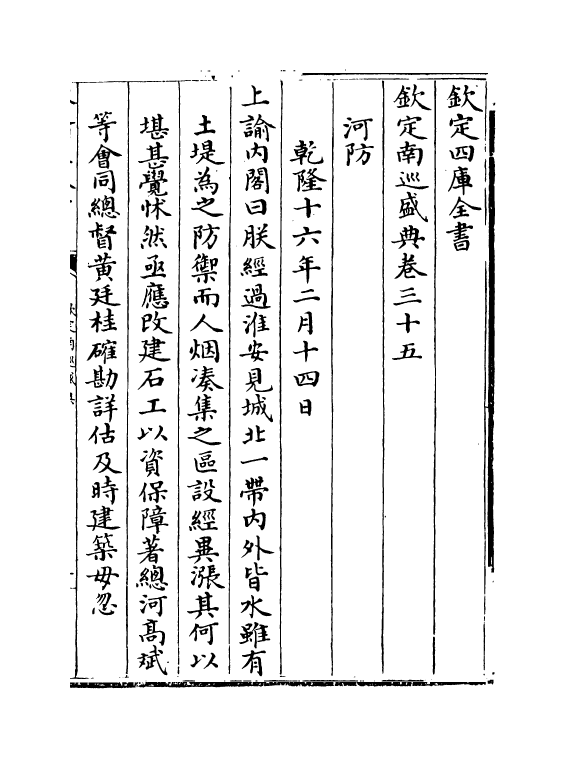 欽定四庫全書
欽定南巡盛典卷三十五
河防
乾隆十六年二月十四日
上諭內閣曰朕經過淮安見城北一帶內外皆水雖有
土堤為之防禦而人烟湊集之區設經異漲其何以
堪甚覺怵然亟應改建石工以資保障著總河高斌
等會同總督黃廷桂確勘詳估及時建築毋忽
欽定南巡盛典